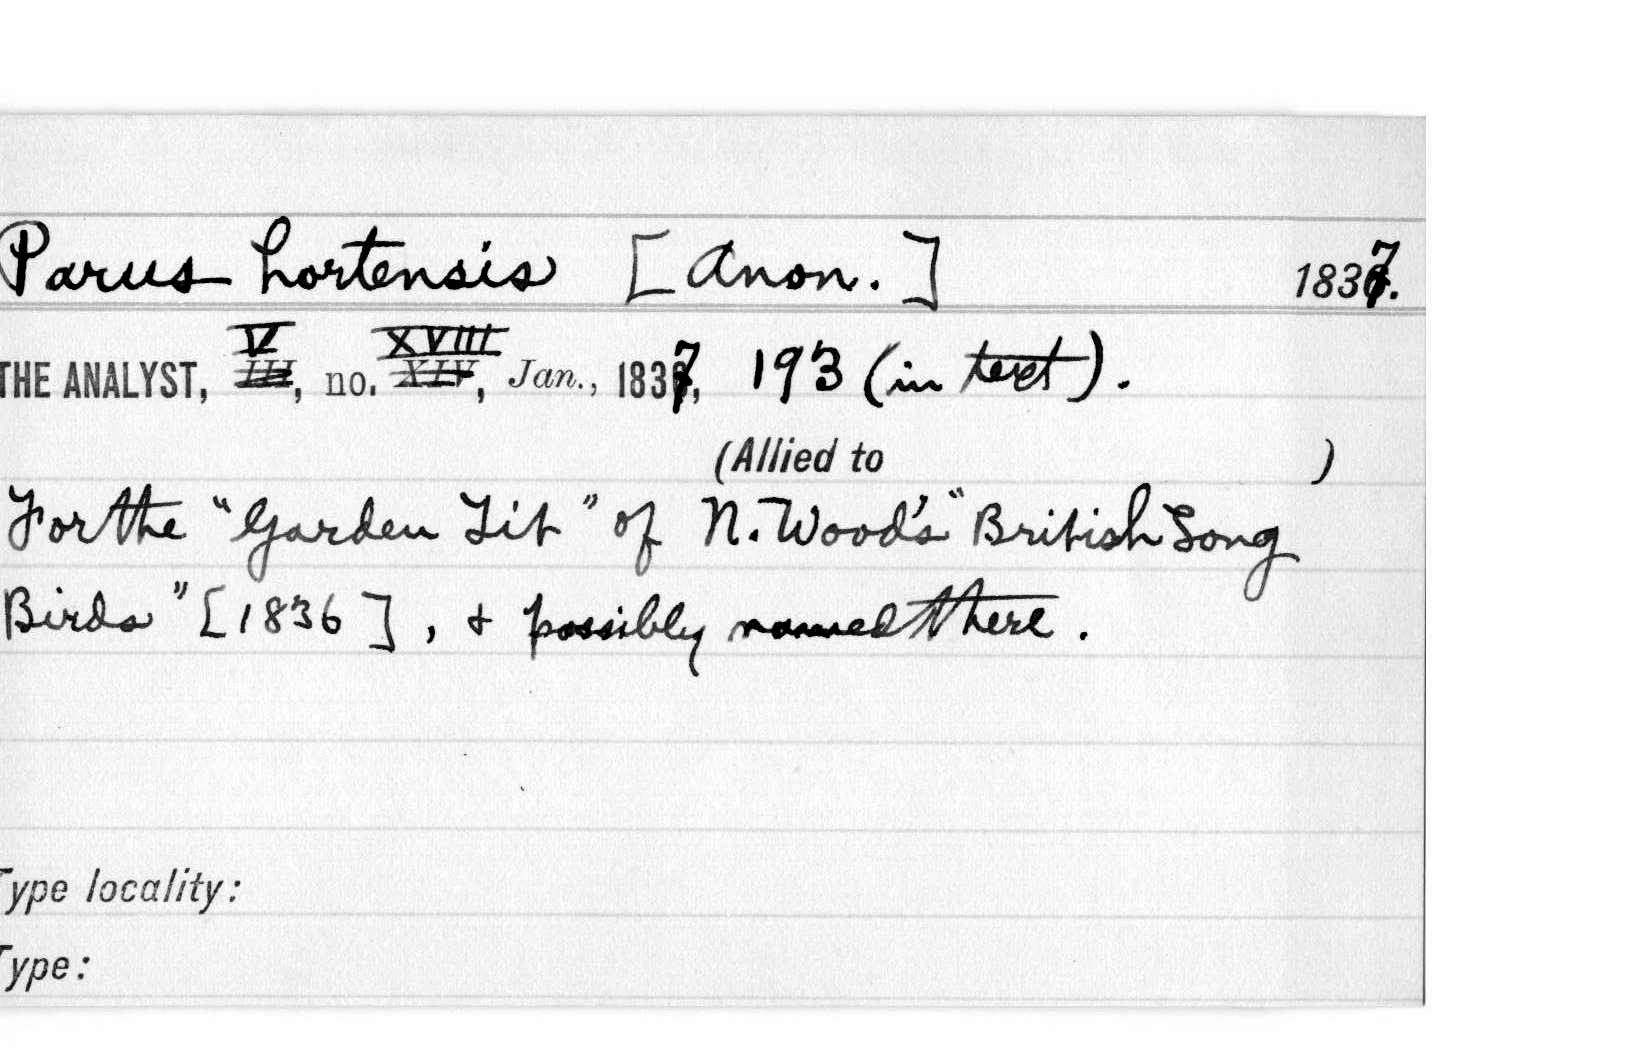 Parus hortensis [Anon.] 1837.
THE ANALYST, V, no. XVIII, Jan., 1837, 193 (in text).
(Allied to )
For the "Garden Tit" of N. Wood's "British Song
Birds" [1836], & possibly named there.
Type locality:
Type: